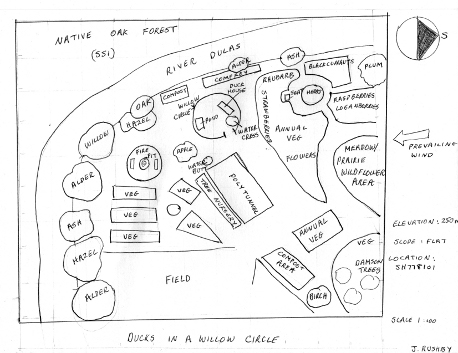 NATIVE OAK FOREST
(SSI)
RIVER DULAS
S
ALDER
ASH
COMFREY
COMPOST
BLACKCURRANTS
PLUM
RHUBARB
DUCK
HOUSE
OAK
HAZEL
WILLOW
CIRCLE
POND
SEAT
HERBS
RASPBERRIES
LOGANBERRIES
STRAWBERRIES
WATER
CRESS
ANNUAL
VEG
FLOWERS
WILLOW
FIRE
PIT
APPLE
WATER
BUTT
MEADOW/
PRAIRIE
WILDFLOWER
AREA
PREVAILING
WIND
ALDER
VEG
VEG
TREE NURSERY
POLYTUNNEL
ASH
VEG
VEG
VEG
ANNUAL
VEG
ELEVATION: 250m
VEG
SLOPE: FLAT
HAZEL
COMPOST
AREA
DAMSON
TREES
LOCATION:
SH778101
FIELD
ALDER
BIRCH
SCALE 1:100
DUCKS IN A WILLOW CIRCLE
J. RUSHBY